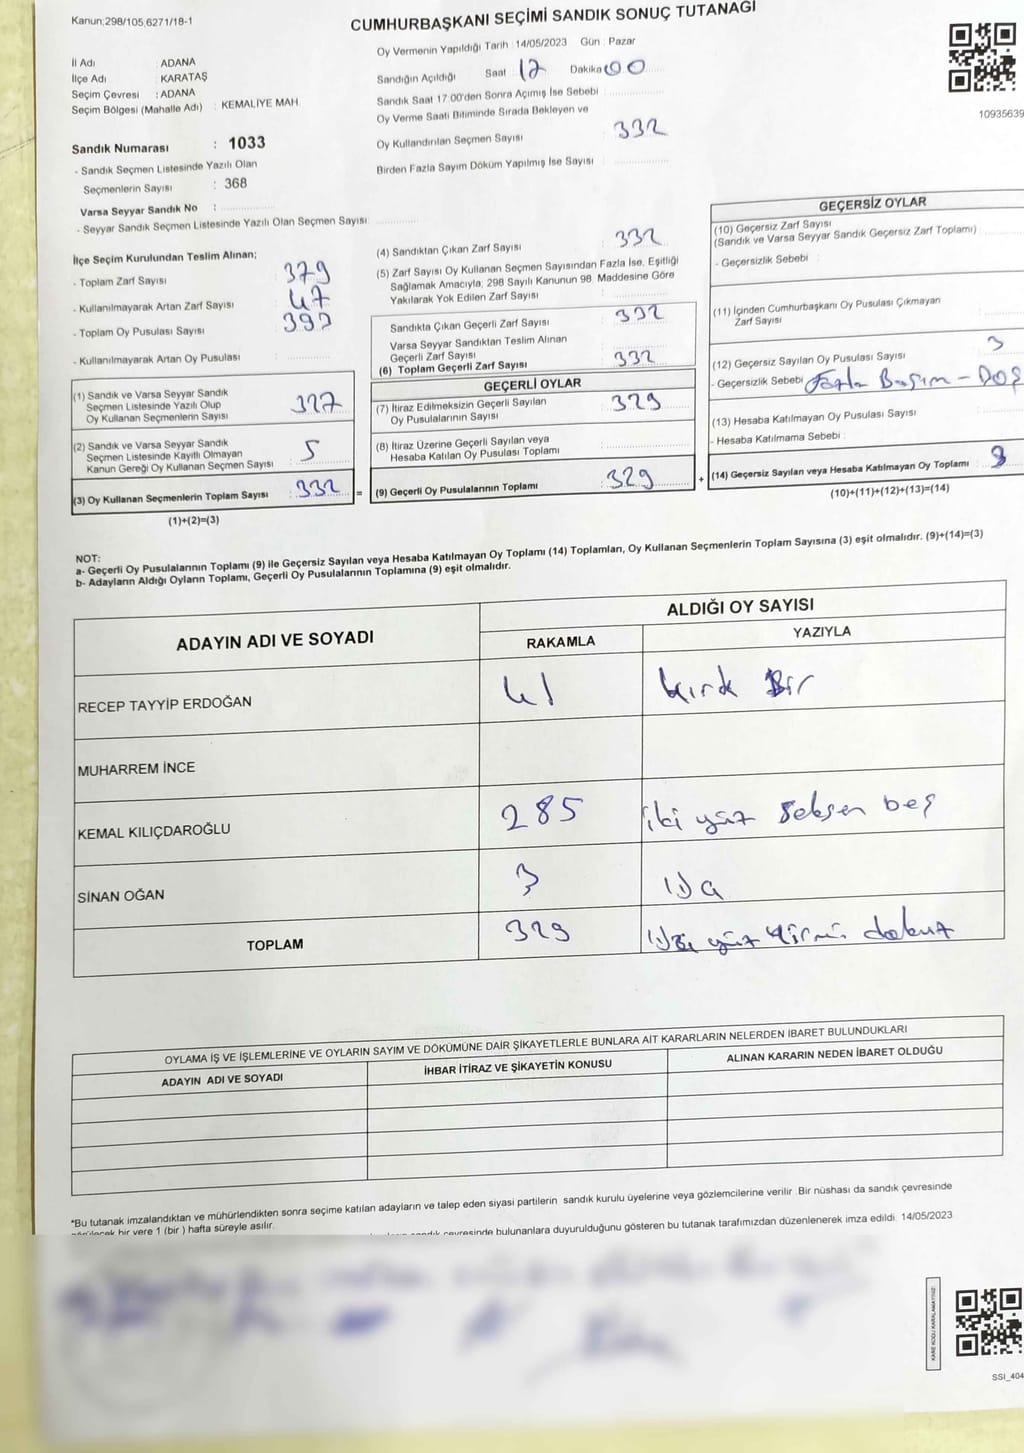 Kanun;298/105,6271/18-1
CUMHURBAŞKANI SEÇİMİ SANDIK SONUÇ TUTANAĞI
İl Adı : ADANA
İlçe Adı : KARATAŞ
Seçim Çevresi : ADANA
Seçim Bölgesi (Mahalle Adı) : KEMALİYE MAH
Sandık Numarası : 1033
- Sandık Seçmen Listesinde Yazılı Olan
Seçmenlerin Sayısı : 368
Varsa Seyyar Sandık No :
- Seyyar Sandık Seçmen Listesinde Yazılı Olan Seçmen Sayısı:
Oy Vermenin Yapıldığı Tarih : 14/05/2023 Gün : Pazar
Sandığın Açıldığı Saat 17 Dakika 00
Sandık Saat 17:00'den Sonra Açımış İse Sebebi :
Oy Verme Saati Bitiminde Sırada Bekleyen ve
Oy Kullandırılan Seçmen Sayısı : 332
Birden Fazla Sayım Döküm Yapılmış İse Sayısı :
10935639
İlçe Seçim Kurulundan Teslim Alınan;
- Toplam Zarf Sayısı : 379
- Kullanılmayarak Artan Zarf Sayısı : 47
- Toplam Oy Pusulası Sayısı : 393
- Kullanılmayarak Artan Oy Pusulası :
(1) Sandık ve Varsa Seyyar Sandık
Seçmen Listesinde Yazılı Olup
Oy Kullanan Seçmenlerin Sayısı : 327
(2) Sandık ve Varsa Seyyar Sandık
Seçmen Listesinde Kayıtlı Olmayan
Kanun Gereği Oy Kullanan Seçmen Sayısı : 5
(3) Oy Kullanan Seçmenlerin Toplam Sayısı : 332 =
(1)+(2)=(3)
(4) Sandıktan Çıkan Zarf Sayısı : 332
(5) Zarf Sayısı Oy Kullanan Seçmen Sayısından Fazla İse, Eşitliği
Sağlamak Amacıyla; 298 Sayılı Kanunun 98. Maddesine Göre
Yakılarak Yok Edilen Zarf Sayısı :
Sandıkta Çıkan Geçerli Zarf Sayısı : 332
Varsa Seyyar Sandıktan Teslim Alınan
Geçerli Zarf Sayısı :
(6) Toplam Geçerli Zarf Sayısı : 332
GEÇERLİ OYLAR
(7) İtiraz Edilmeksizin Geçerli Sayılan
Oy Pusulalarının Sayısı : 329
(8) İtiraz Üzerine Geçerli Sayılan veya
Hesaba Katılan Oy Pusulası Toplamı :
(9) Geçerli Oy Pusulalarının Toplamı : 329 +
GEÇERSİZ OYLAR
(10) Geçersiz Zarf Sayısı
(Sandık ve Varsa Seyyar Sandık Geçersiz Zarf Toplamı) :
- Geçersizlik Sebebi :
(11) İçinden Cumhurbaşkanı Oy Pusulası Çıkmayan
Zarf Sayısı :
(12) Geçersiz Sayılan Oy Pusulası Sayısı : 3
- Geçersizlik Sebebi : Fazla Basım - Boş
(13) Hesaba Katılmayan Oy Pusulası Sayısı :
- Hesaba Katılmama Sebebi :
(14) Geçersiz Sayılan veya Hesaba Katılmayan Oy Toplamı : 3
(10)+(11)+(12)+(13)=(14)
NOT:
a- Geçerli Oy Pusulalarının Toplamı (9) ile Geçersiz Sayılan veya Hesaba Katılmayan Oy Toplamı (14) Toplamları, Oy Kullanan Seçmenlerin Toplam Sayısına (3) eşit olmalıdır. (9)+(14)=(3)
b- Adayların Aldığı Oyların Toplamı, Geçerli Oy Pusulalarının Toplamına (9) eşit olmalıdır.
ADAYIN ADI VE SOYADI ALDIĞI OY SAYISI
RAKAMLA YAZIYLA
RECEP TAYYİP ERDOĞAN 41 kırk Bir
MUHARREM İNCE
KEMAL KILIÇDAROĞLU 285 iki yüz seksen beş
SİNAN OĞAN 3
TOPLAM 329 yüz yirmi dokuz
OYLAMA İŞ VE İŞLEMLERİNE VE OYLARIN SAYIM VE DÖKÜMÜNE DAİR ŞİKAYETLERLE BUNLARA AİT KARARLARIN NELERDEN İBARET BULUNDUKLARI
ADAYIN ADI VE SOYADI İHBAR İTİRAZ VE ŞİKAYETİN KONUSU ALINAN KARARIN NEDEN İBARET OLDUĞU
*Bu tutanak imzalandıktan ve mühürlendikten sonra seçime katılan adayların ve talep eden siyasi partilerin sandık kurulu üyelerine veya gözlemcilerine verilir. Bir nüshası da sandık çevresinde
bir yere 1 (bir ) hafta süreyle asılır.
çevresinde bulunanlara duyurulduğunu gösteren bu tutanak tarafımızdan düzenlenerek imza edildi. 14/05/2023
SSI_404